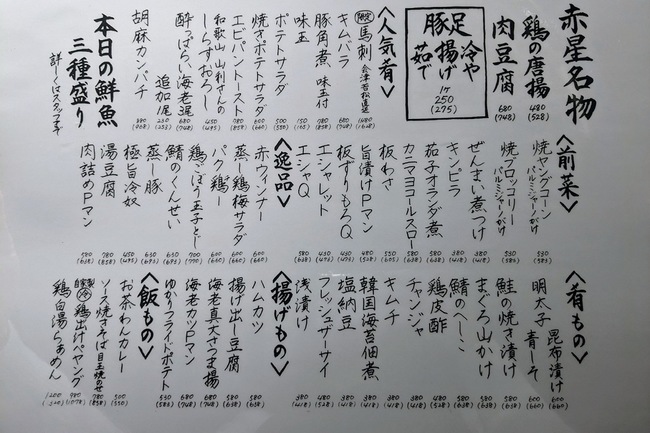 赤星名物
鶏の唐揚 480 (528)
肉豆腐 680 (748)
豚足 揚げ 茹で 冷や
1ヶ 250 (275)
<人気肴>
限定 馬刺 会津若松直送 1480 (1628)
キムバラ 680 (748)
豚角煮 味玉付 780 (858)
味玉 150 (165)
ポテトサラダ 500 (550)
焼きポテトサラダ 600 (660)
エビパントースト 780 (858)
和歌山 山利さんのしらすおろし 450 (495)
酔っぱらい海老 2尾 680 (748)
追加1尾
胡麻カンパチ 880 (968)
本日の鮮魚
三種盛り
詳しくはスタッフまで
<前菜>
焼ヤングコーン パルミジャーノがけ 530 (583)
焼ブロッコリー パルミジャーノがけ 530 (583)
ぜんまい煮つけ 380 (418)
キンピラ 380 (418)
茄子オランダ煮 580 (638)
カニマヨコールスロー 580 (638)
板わさ 550 (605)
旨漬けPマン 480 (528)
板ずりもろQ 430 (473)
エシャレット 430 (473)
エシャQ 580 (638)
<逸品>
赤ウィンナー 600 (660)
蒸し鶏梅サラダ 600 (660)
パク鶏 600 (660)
鶏ごぼう玉子とじ 700 (770)
鯖のくんせい 630 (693)
蒸し豚 630 (693)
極旨冷奴 450 (495)
湯豆腐 780 (858)
肉詰めPマン 580 (638)
<肴もの>
昆布漬け 600 (660)
明太子 青しそ 600 (660)
鮭の焼き漬け 580 (638)
まぐろ山かけ 580 (638)
鯖のへしこ 580 (638)
鶏皮酢 480 (528)
チャンジャ 580 (638)
キムチ 380 (418)
韓国海苔佃煮 380 (418)
塩納豆 380 (418)
フレッシュザーサイ 480 (528)
浅漬け 380 (418)
<揚げもの>
ハムカツ 580 (638)
揚げ出し豆腐 580 (638)
海老真丈さつま揚 680 (748)
海老カツPマン 680 (748)
ゆかりフライドポテト 530 (583)
<飯もの>
お茶わんカレー 500 (550)
ソース焼きそば 目玉焼のせ 780 (858)
自家製 冷 鶏出けペヤング 980 (1078)
鶏白湯らぁめん 1200 (1320)